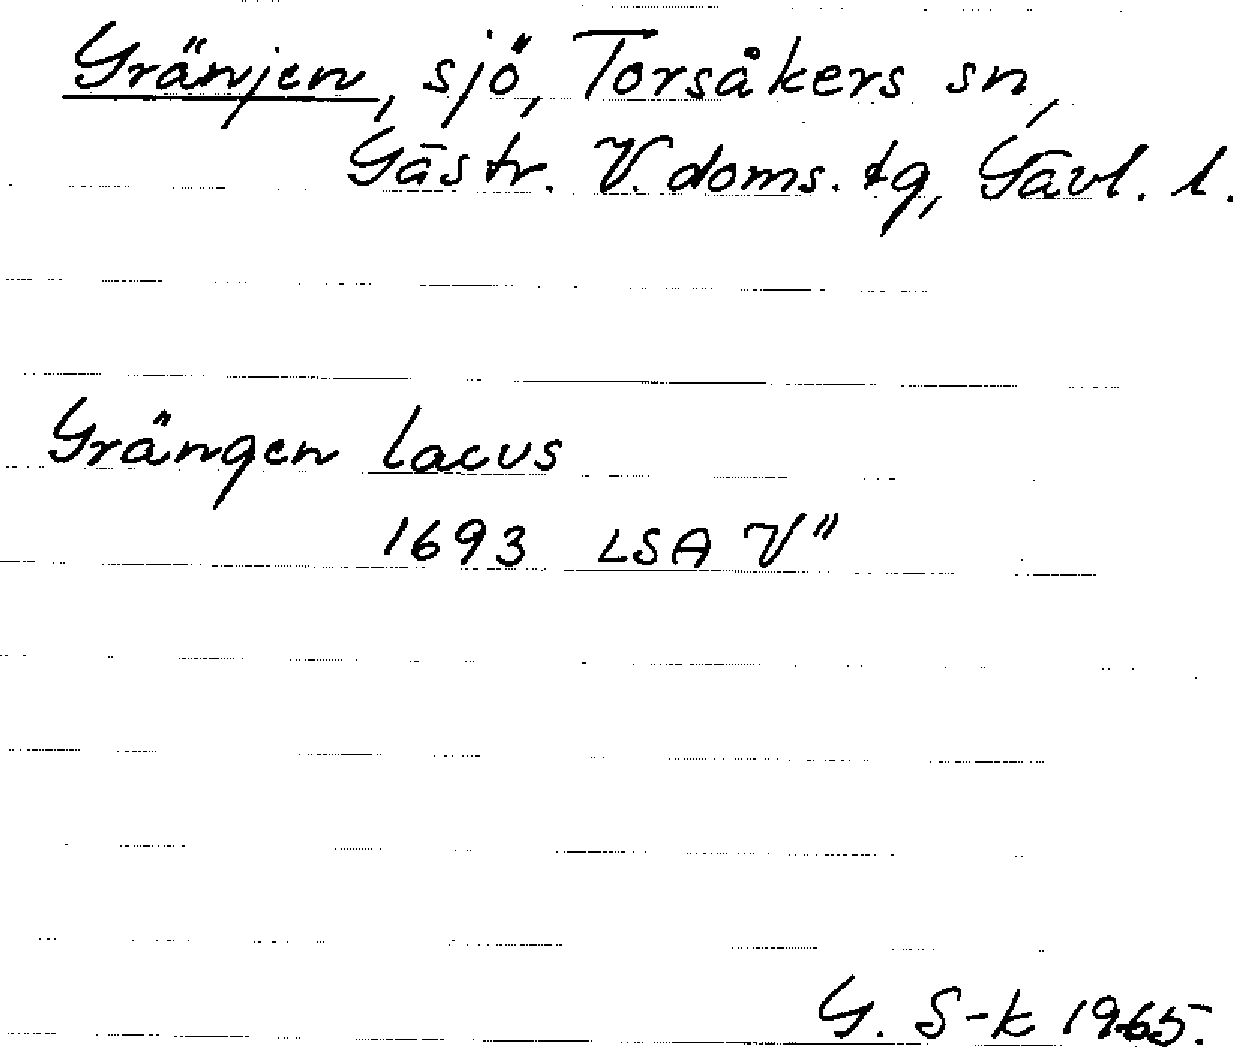 Gränjen, sjö, Torsåkers sn,
Gästr. V. doms. tg, Gävl. l.
Grängen lacus
1693 LSA V"
G. S-k 1965.